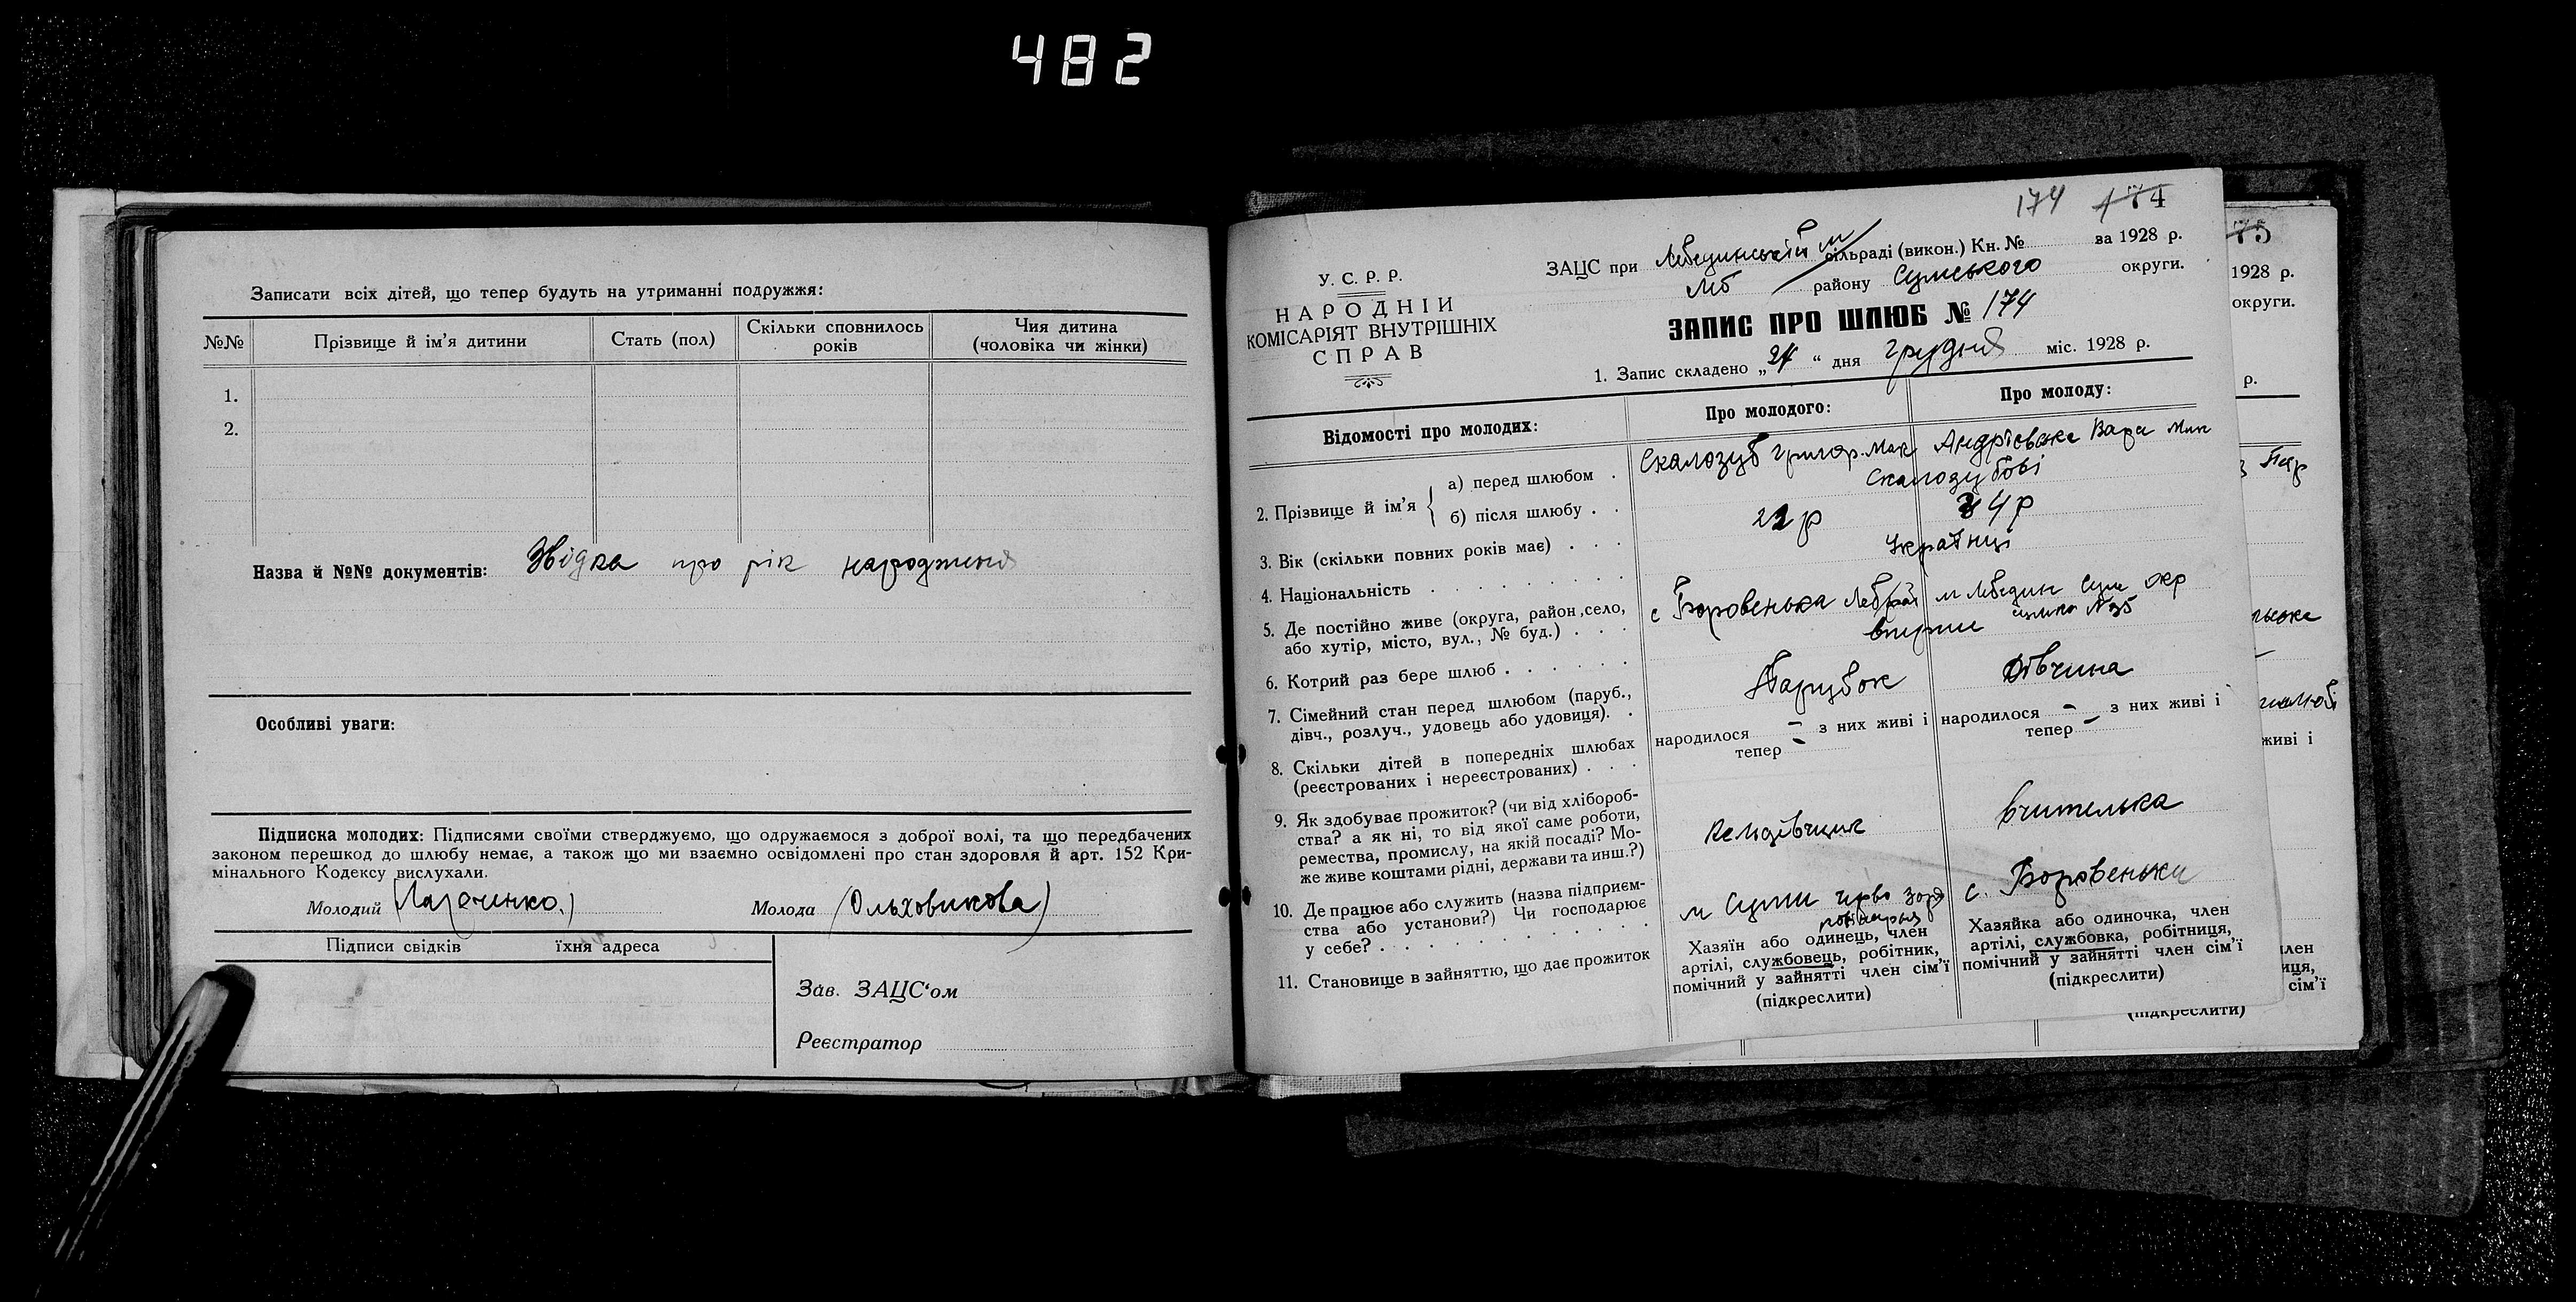 482
Записати всіх дітей, що тепер будуть на утриманні подружжя:
№№ Прізвище й ім'я дитини Стать (пол) Скільки сповнилось років Чия дитина (чоловіка чи жінки)
1.
2.
Назва й №№ документів: Звідка про рік народження
Особливі уваги:
Підписка молодих: Підписями своїми стверджуємо, що одружаємося з доброї волі, та що передбачених
законом перешкод до шлюбу немає, а також що ми взаємно освідомлені про стан здоровля й арт. 152 Кри-
мінального Кодексу вислухали.
Молодий (Лазаченко) Молода (Ольховикова)
Підписи свідків їхня адреса
Зав. ЗАЦС'ом
Реєстратор
174 174
У. С. Р. Р.
НАРОДНІЙ
КОМІСАРІЯТ ВНУТРІШНІХ
СПРАВ
ЗАЦС при Лебединській м сільраді (викон.) Кн. № за 1928 р.
Лб району Сумського округи.
ЗАПИС ПРО ШЛЮБ № 174
1. Запис складено „24“ дня Грудня міс. 1928 р.
Відомості про молодих: Про молодого: Про молоду:
2. Прізвище й ім'я { а) перед шлюбом . Скалозуб Григор. Мак Андрієвська Вара Мик
б) після шлюбу . . Скалозубові
3. Вік (скільки повних років має) . . . 22 р 24 р
4. Національність . . . . . . . . Українці
5. Де постійно живе (округа, район, село,
або хутір, місто, вул., № буд.) . . . с Боровенька Леб рай м Лебедин Сум окр
6. Котрий раз бере шлюб . . . . . . вперше
7. Сімейний стан перед шлюбом (паруб.,
дівч., розлуч., удовець або удовиця). . Парубок Дівчина
8. Скільки дітей в попередніх шлюбах
(реєстрованих і нереєстрованих) . . . народилося – з них живі і тепер – народилося – з них живі і тепер –
9. Як здобуває прожиток? (чи від хлібороб-
ства? а як ні, то від якої саме роботи,
ремества, промислу, на якій посаді? Мо-
же живе коштами рідні, держави та инш.?) вчителька
10. Де працює або служить (назва підприєм-
ства або установи?) Чи господарює
у себе? . . . . . . . . . м Суми с. Боровеньки
11. Становище в зайняттю, що дає прожиток
Хазяїн або одинець, член
артілі, службовець, робітник,
помічний у зайнятті член сім'ї
(підкреслити)
Хазяйка або одиночка, член
артілі, службовка, робітниця,
помічний у зайнятті член сім'ї
(підкреслити)
75
1928 р.
округи.
р.
живі і
член
сім'ї
(підкреслити)